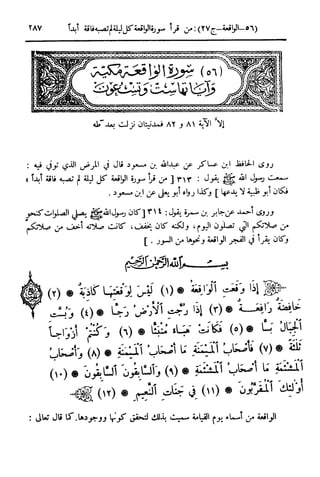 (٥٦-الواقعة-ج٢٧): من قرأ سورة الواقعة كل ليلة لم تصبه فاقة أبداً ٢٨٧
(٥٦) سورة الواقعة مكية
وآياتها ست وتسعون
إلا الآية ٨١ و ٨٢ فمدنيتان نزلت بعد طه
روى الحافظ ابن عساكر عن عبدالله بن مسعود قال في المرض الذي توفي فيه :
سمعت رسول الله ﷺ يقول : ٣١٣ [ من قرأ سورة الواقعة كل ليلة لم تصبه فاقة أبداً ؛
فكان أبو ظبية لا يدعها ] وكذا رواه أبو يعلى عن ابن مسعود .
وروى أحمد عن جابر بن سمرة يقول : ٣١٤ [ كان رسول الله ﷺ يصلي الصلوات كنحو
من صلاتكم التي تصلون اليوم ، ولكنه كان يخفف ، كانت صلاته أخف من صلاتكم
وكان يقرأ في الفجر الواقعة ونحوها من السور . ]
بسم الله الرحمن الرحيم
إذا وقعت الواقعة * (١) ليس لوقعتها كاذبة * (٢)
خافضة رافعة * (٣) إذا رجت الأرض رجا * (٤) وبست
الجبال بسا * (٥) فكانت هباء منبثا * (٦) وكنتم أزواجا
ثلاثة * (٧) فأصحاب الميمنة ما أصحاب الميمنة * (٨) وأصحاب
المشئمة ما أصحاب المشئمة * (٩) والسابقون السابقون * (١٠)
أولئك المقربون * (١١) في جنات النعيم * (١٢)
الواقعة من أسماء يوم القيامة سميت بذلك لتحقق كونها ووجودها. كما قال تعالى :